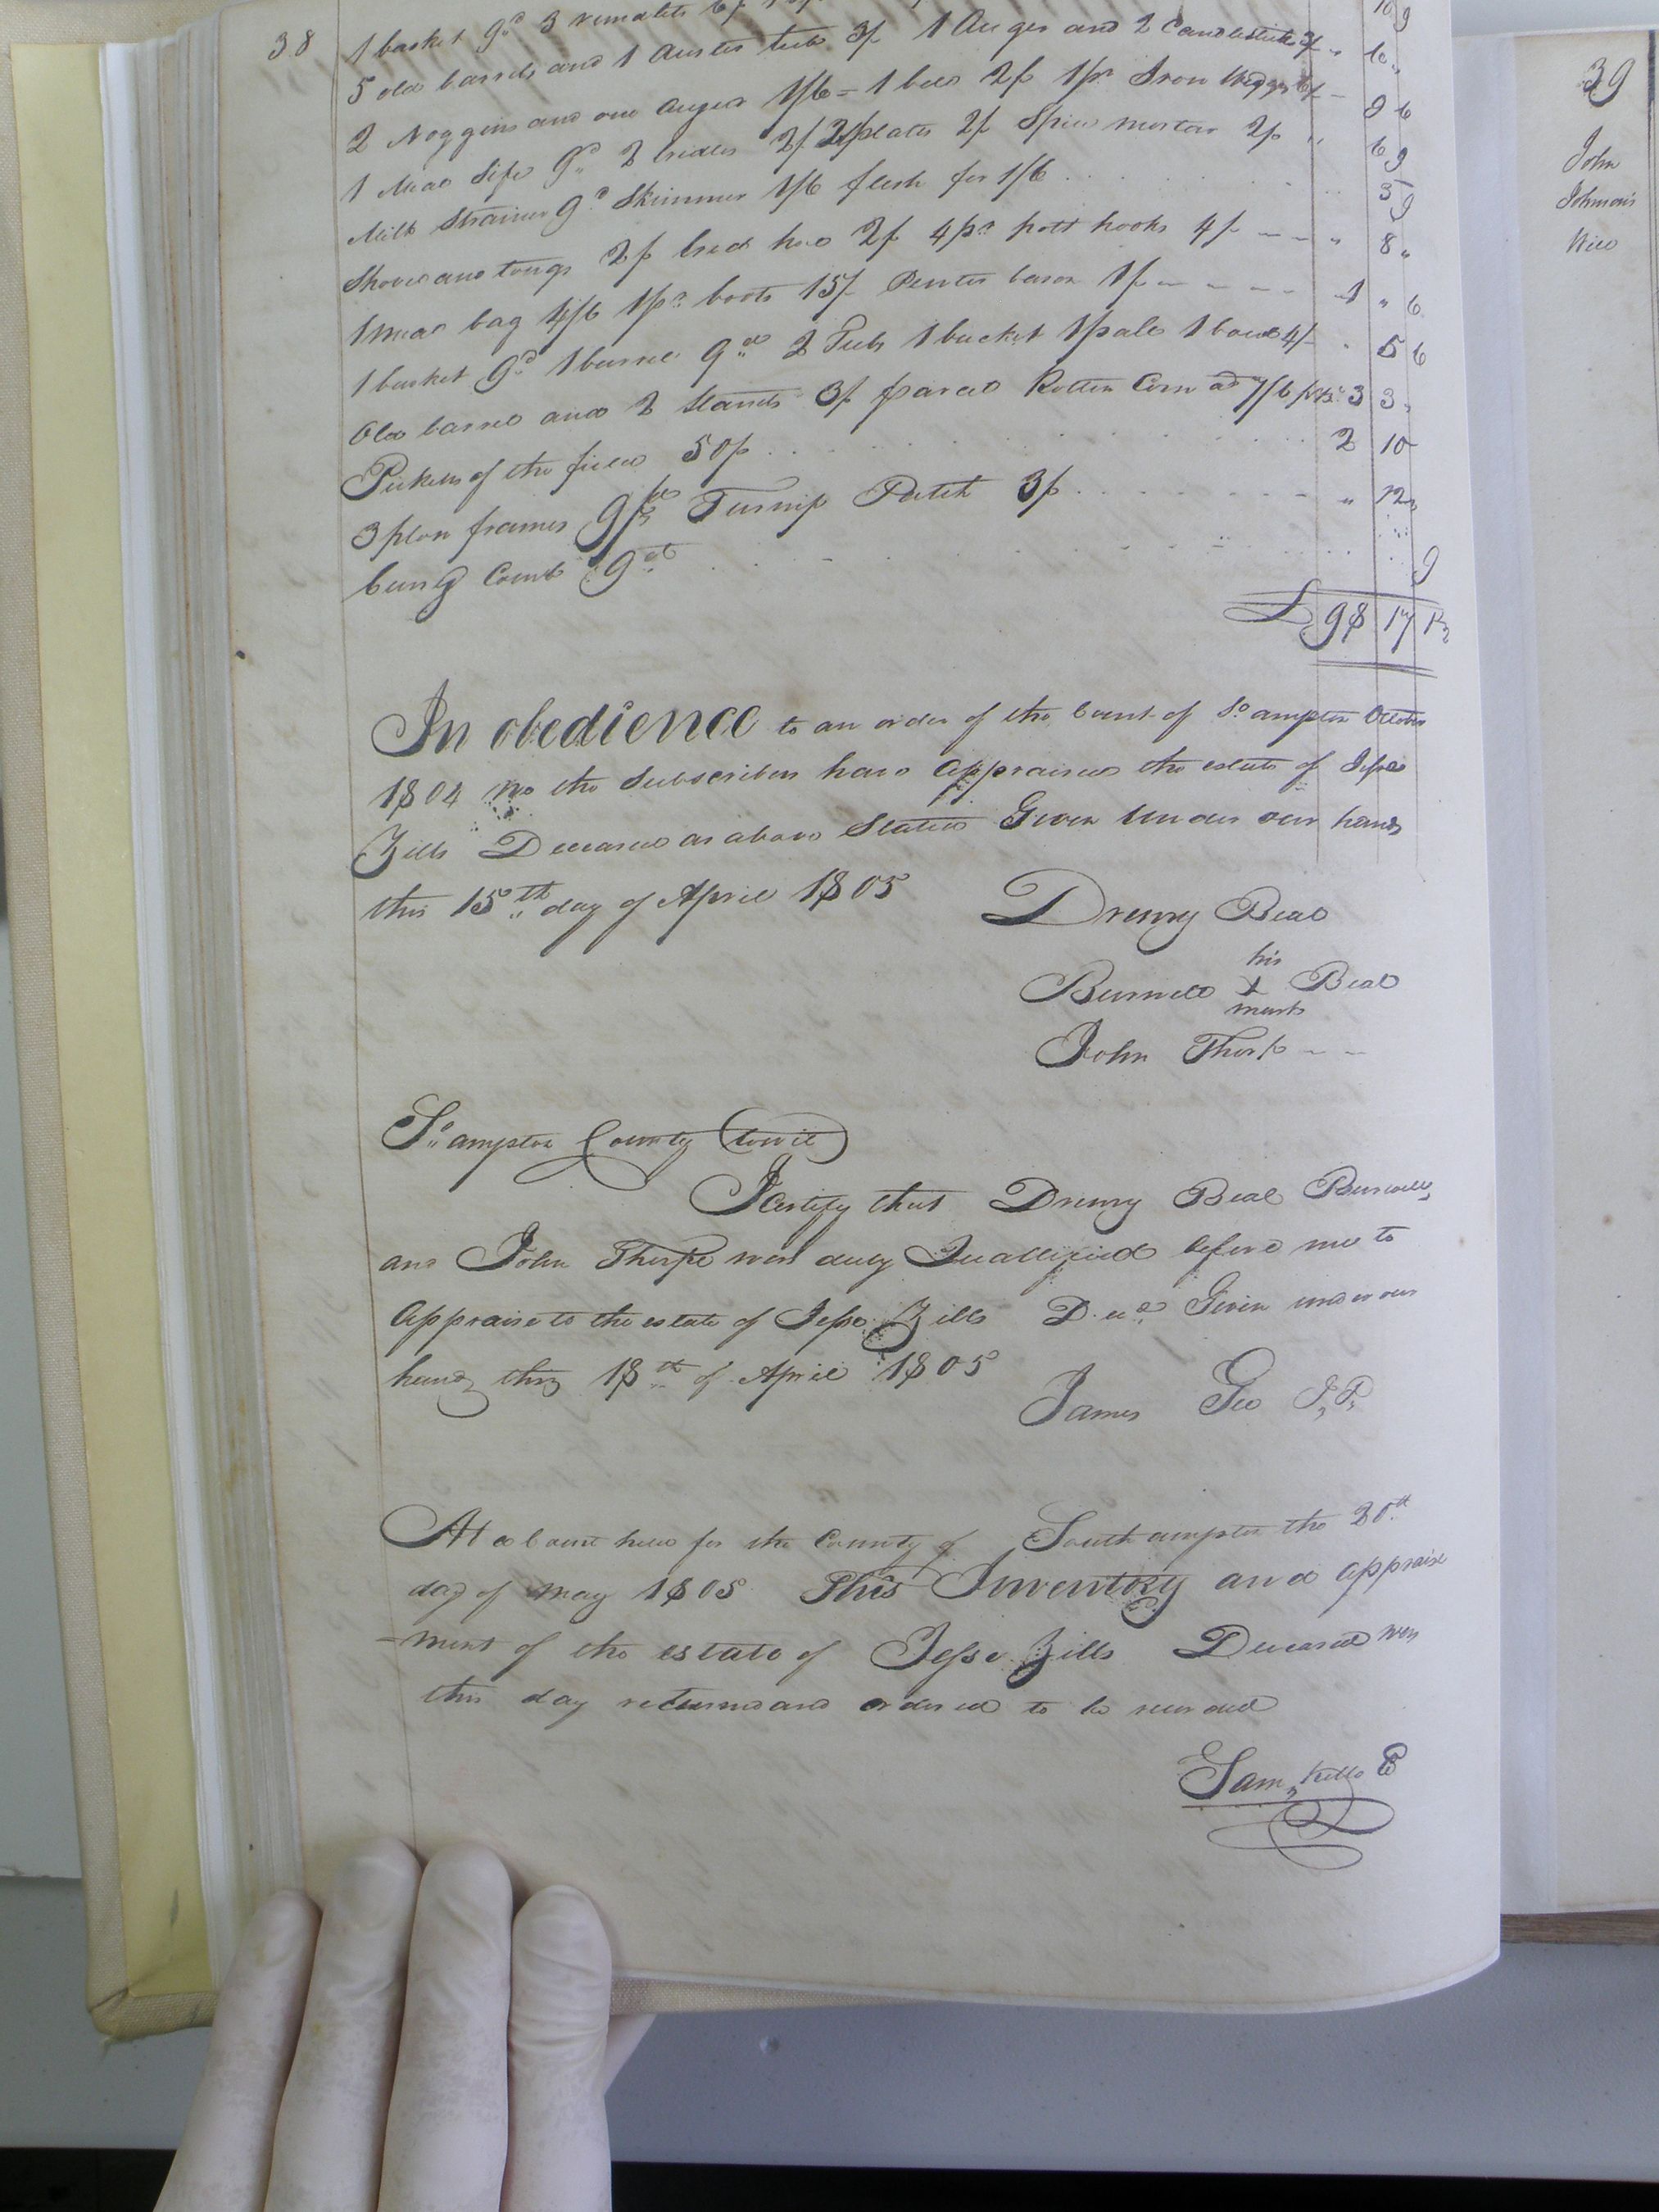 38
1 basket 9d 3
5 old barrels and 1 tub 3/ 1 Auger and 2 Candlesticks 3/ " 6 "
2 Noggins and one auger 1/6 = 1 bell 2/ 1 pr Iron Wedges 6/ 9 6
1 Meal Sife 9d 2 2/ 2 plates 2/ Spice mortar 2/ " 6 9
Milk Strainer 9d Skimmer 1/6 flesh for 1/6 3 9
Shovel and tongs 2/ hoe 2/ 4 prs pott hooks 4/ " 8 "
1 Meal bag 4/6 1 pr boots 15/ Pewter bason 1/ 1 " 6
1 basket 9d 1 barrel 9d 2 Tubs 1 bucket 1 pale 1 bowl 4/ " 5 6
Old barrel and 2 Stands 3/ parcel Rotten Corn a 7/6 3 3 "
Pickens of the field 50/ 2 10
3 plow frames 9/ Turnip Patch 3/ " 12 "
Comb 9d 9
£ 98 17
In obedience to an order of the Court of So ampton October
1804 we the Subscribers have appraised the estate of Jesse
Zills Deceased as above Stated Given Under our hands
this 15th day of April 1805
Drewry Beal
his
Burwell X Beal
mark
John Thorp
So ampton County (towit)
I Certify that Drewry Beal Burwell
and John Thorpe was duly Quallified before me to
Appraise to the estate of Jesse Zills Decd Given under our
hands this 18th of April 1805
James Geo J,P,
At a Court held for the County of Southampton the 20th
day of May 1805 This Inventory and appraise
=ment of the estate of Jesse Zills Deceased was
this day returned and ordered to be recorded
Sam, Kello C
39
John
Johnson's
Will